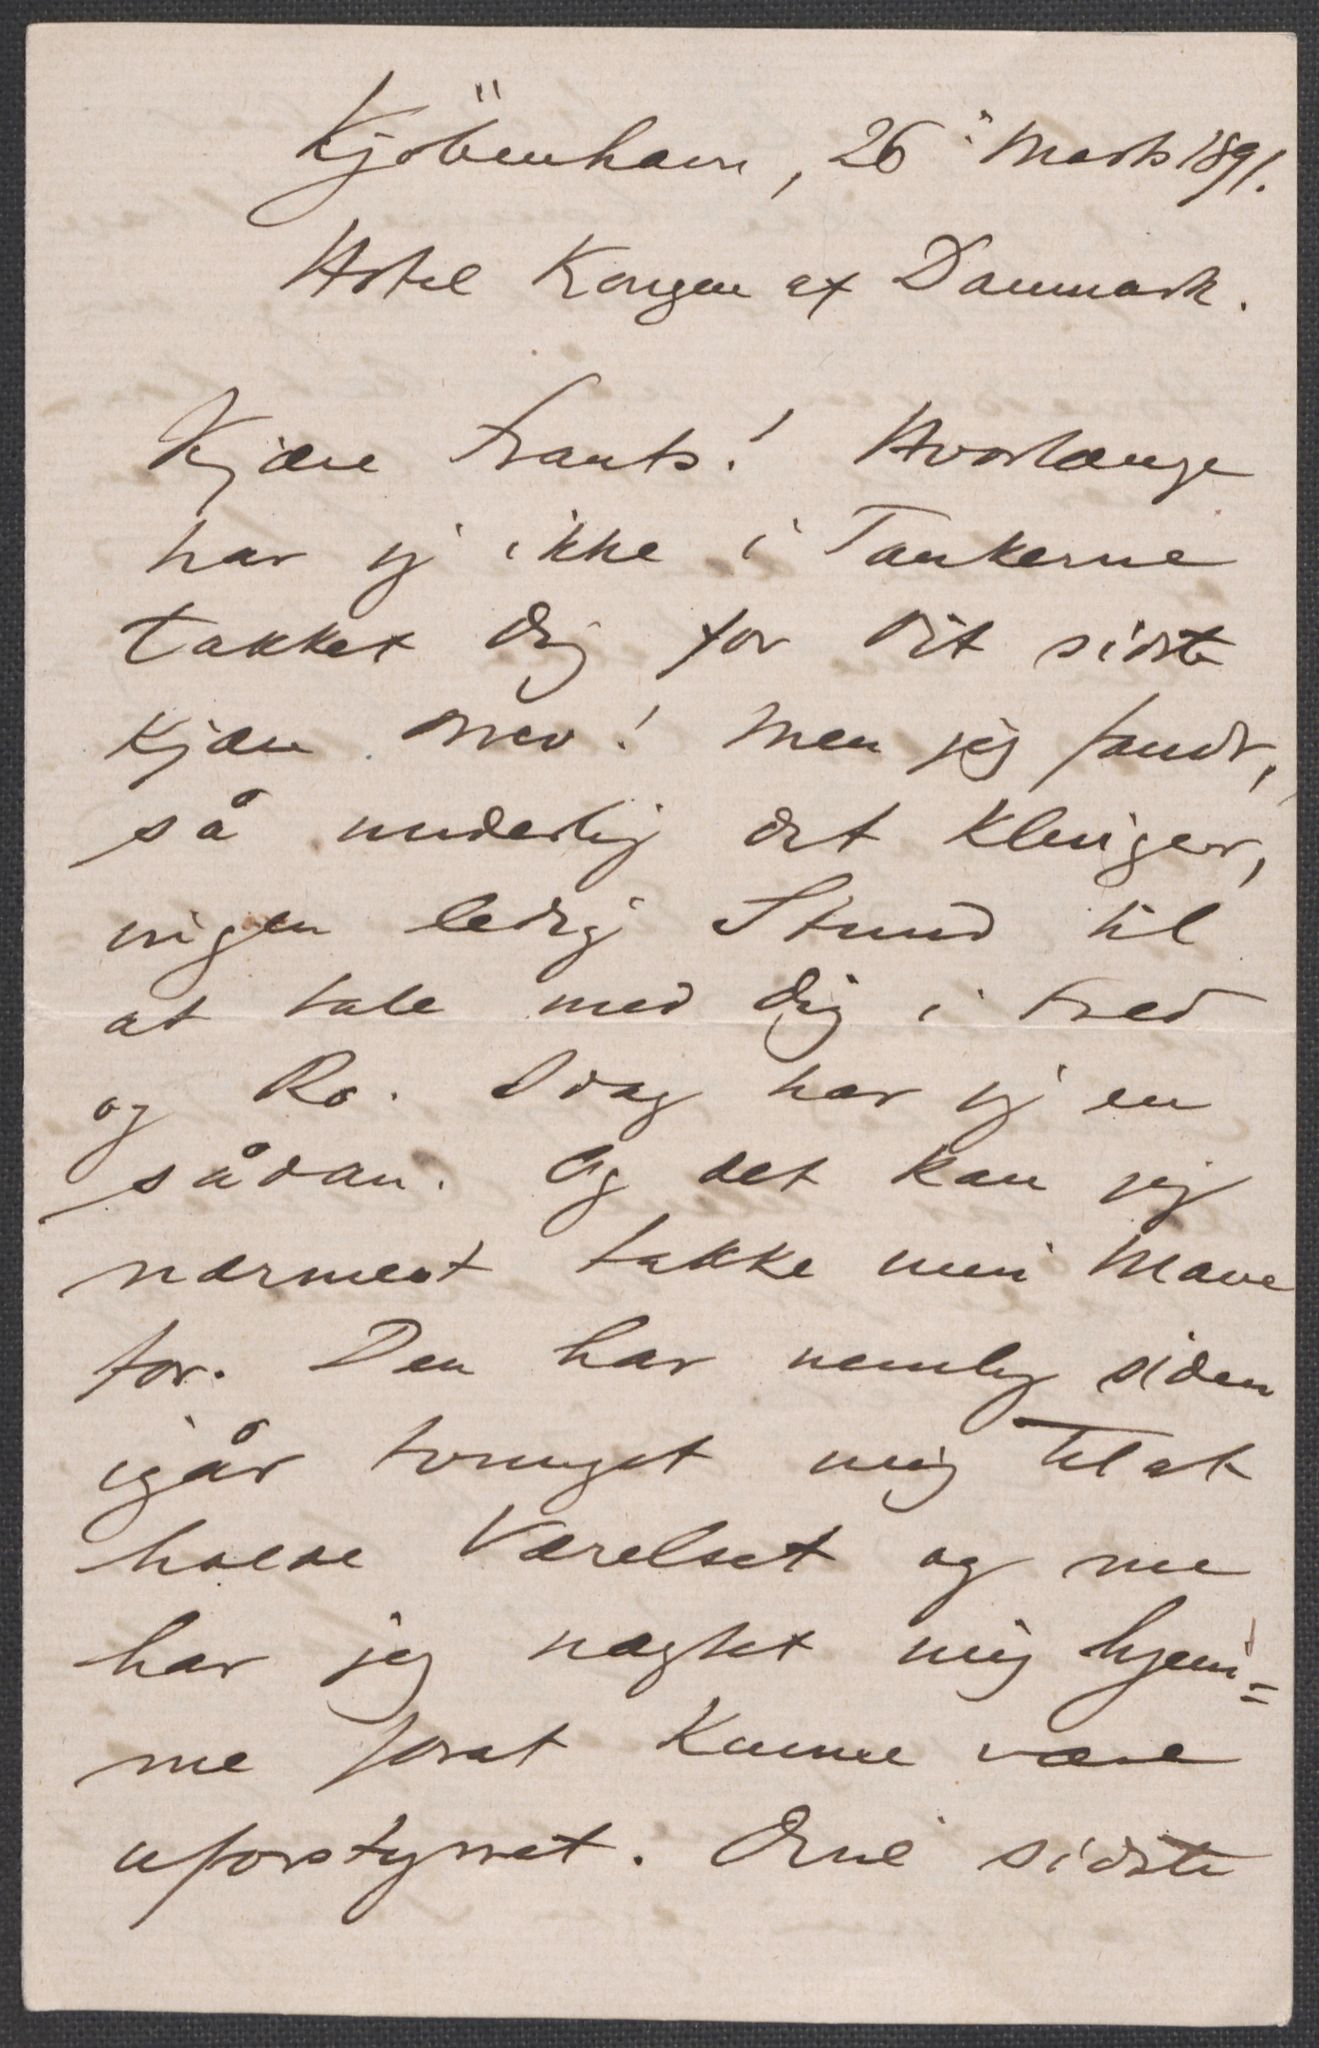 Kjöbenhavn, 26" Marts 1891.
Hotel Kongen af Danmark.
Kjære Frants! Hvorlænge
har jeg ikke i Tankerne
takket Dig for Dit sidste
kjære Brev! Men jeg fandt,
så underlig det klinger,
ingen ledig Stund til
at tale med Dig i Fred
og Ro. Idag har jeg en
sådan. Og det kan jeg
nærmest takke min Mave
for. Den har nemlig siden
igår tvunget mig til at
holde Værelset og nu
har jeg nægtet mig hjem=
me forat kunne være
uforstyrret. Dine sidste